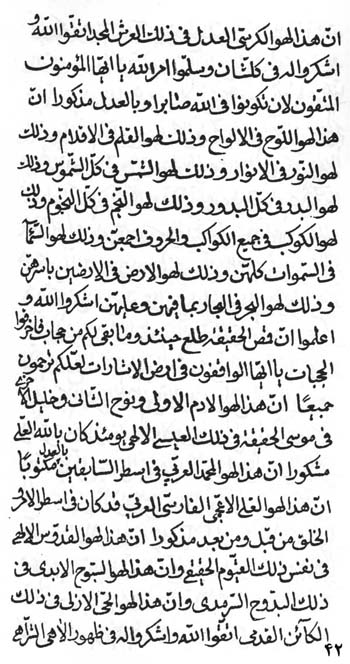 انّ هذا لهو الكرسىّ العدل فى ذلك العرش المجد اتّقوا اللّه و
اشكروا له فى كلّشان و سلّموا امر اللّه يا ايّها المؤمنون
المتّقون لان تكونوا فى اللّه صابرا و بالعدل مذكورا انّ
هذا لهو اللّوح فى الالواح و ذلك لهو القلم فى الاقلام و ذلك
لهو النّور فى الانوار و ذلك لهو الشّمس فى كلّ الشّموس و ذلك
لهو البدر فى كلّ البدور و ذلك لهو النّجم فى كلّ النّجوم و ذلك
لهو الكوكب فى جميع الكواكب و الحروف اجمعين و ذلك لهو السّمآء
فى السّموات كلّهنّ و ذلك لهو الارض فى الارضين باسرهنّ
و ذلك لهو البحر فى البحار بما فيهنّ و عليهنّ اشكروا اللّه و
اعلموا انّ قمص الحقيقة طلع حينئذ و ما بقى لكم من حجاب فاخرقوا
الحجبات يا ايّها الواقفون فى ارض الاشارات لعلّكم ترحمون
جميعا انّ هذا لهو الادم الاولى و نوح الثّانى و خليل
فى موسى الحقيقة فى ذلك العيسى الالهى يومئذ كان باللّه العلىّ
مشكورا انّ هذا لهو المحمّد العربى فى اسطر السّابقين بالعدل مكتوبا
انّ هذا لهو العلى الاعجمى الفارسىّ العربى قد كان فى اسطر الامر
الخلق من قبل و من بعد مذكورا انّ هذا لهو القدّوس الالهى
فى نفس ذلك القيّوم الحقيقى و انّ هذا لهو السّبّوح الابدى فى
ذلك البدّوح السّرمدى و انّ هذا لهو الحىّ الازلى فى ذلك
الكائن القدمى اتّقوا اللّه و اشكروا له فى ظهور الالهى
۴۲